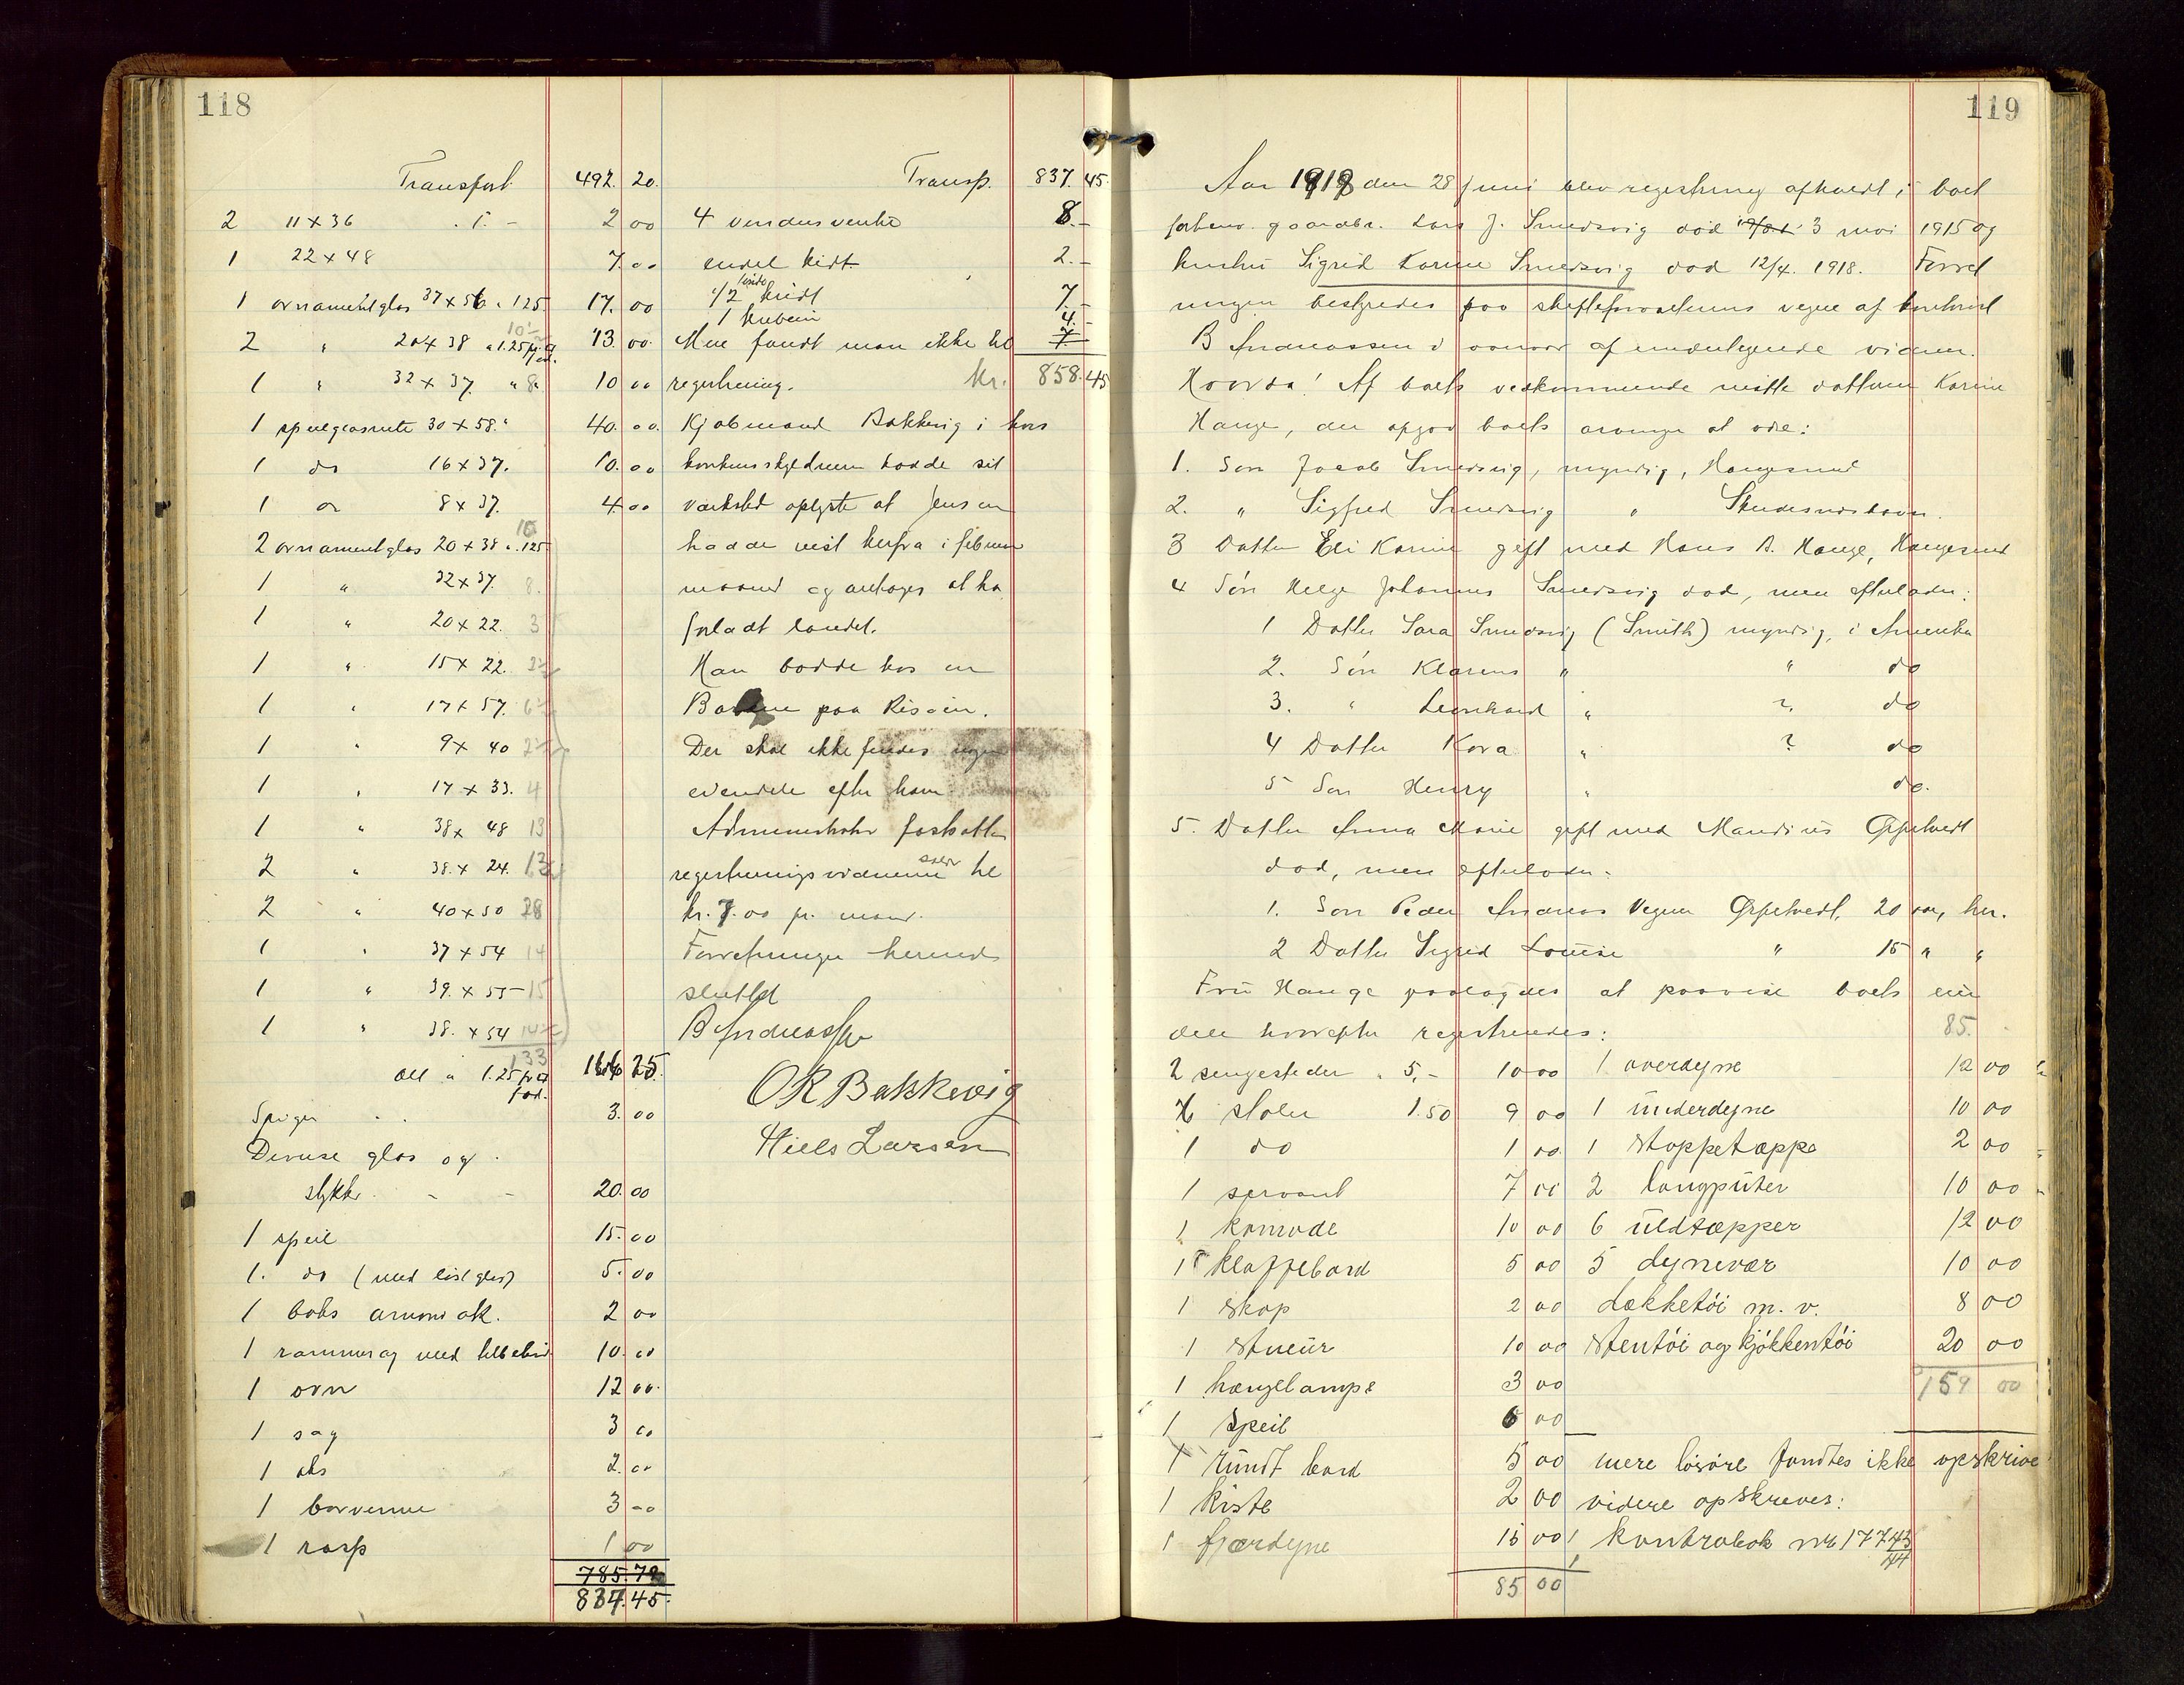 118
Transport 492. 20.
2 11 x 36 . 1. - 2 00
1 22 x 48 7. 00
1 ornamentglas 37 x 56 a 1.25 17. 00
2 " 20 x 38 10 a 1.25 pr. 13. 00.
1 " 32 x 37. " 8. 10 00
1 speilglasrute 30 x 58. " 40. 00.
1 do 16 x 37. 10. 00
1 do 8 x 37. 4 00
2 ornamentglas 20 x 38 a 1.25 10
1 " 32 x 37. 8.
1 " 20 x 22. 3
1 " 15 x 22.
1 " 17 x 57.
1 " 9 x 40
1 " 17 x 33. 4
1 " 38 x 48 13
2 " 38. x 24. 13
2 " 40 x 50 28
1 " 37 x 54 14
1 " 39. x 55 15
1 " 38. x 54
133
alt a 1.25 pr □ fod. 166 25.
Spiger 3. 00
Diverse glas og
stykker. - - 20. 00
1 speil 15. 00
1. do (med löst glas) 5. 00
1 boks 2 00
1 10. 00
1 ovn 12 00.
1 sag 3 00
1 øks 2. 00
1 3 00
1 rasp 1 00
785. 70
837. 45.
Transp. 837. 45.
4 8. -
endel kidt 2. -
1/2 tönde kridt 7. -
1 kubein 4. -
Mere fandt man ikke til 7
registrering. kr. 858. 45
Kjøbmand Bakkevig i hvis
konkursskyldneren hadde sit
verksted oplyste at Jensen
hadde reist herfra i februar
maaned og antages at ha
forladt landet.
Han bodde hos en
paa Risöen.
Der skal ikke findes nogen
eiendele efter ham.
Administrator fastsatte
registreringsvidnernes salær til
kr. 7.00 pr. mand.
Forretningen hermed
sluttet
B Andreassen
O R Bakkevig
Niels Larsen
119
Aar 1919 den 28 juni blev registrering afholdt i boet
forhenv. gaardbr. Lars J. Smedsvig död 3 mai 1915 og
hustru Sigrid Karine Smedsvig död 12/4. 1918. Forret
ningen bestyredes paa skifteforvalterens vegne af kontorist
B Andreassen i overvær af undertegnede vidner.
Hvorda! Af boets vedkommende mötte datteren Karine
Hauge, der opgav boets arvinger at være:
1. Sön Jacob Smedsvig, myndig, Haugesund
2. " Sigfred Smedsvig " Skudesneshavn.
3 Datter Eli Karine gift med Hans A. Hauge, Haugesund
4 Sön Helge Johannes Smedsvig död, men efterlader:
1 Datter Sara Smedsvig (Smith) myndig, i Amerika
2. Sön Klarens " " do
3. " Leonhard " ? do
4 Datter Kora " ? do
5 Sön Henry " do.
5. Datter Anna Marie gift med Mandius Ørpetvedt
död, men efterlader:
1. Sön Peder Andreas Vegner Ørpetvedt, 20 aar, her.
2 Datter Sigrid Louise " 15 " "
Fru Hauge paalagdes at paavise boets eien
dele hvorefter registreredes: 85.
2 sengesteder a 5,- 10 00
6 stoler 1.50 9 00
1 do 1 00
1 servant 7 00
1 komode 10 00
1 klaffebord 5 00
1 skap 2 00
1 stueur 10 00
1 hængelampe 3 00
1 speil 6 00
1 rundt bord 5 00
1 kiste 2 00
1 fjærdyne 15 00
85 00
1 overdyne 12 00
1 underdyne 10 00
1 stoppetæppe 2 00
2 langputer 10 00
6 uldtæpper 12 00
5 dynevar 10 00
Dækketöi m. v. 8 00
Stentöi og kjökkentöi 20 00
159 00
mere lösöre fandtes ikke opskrive
videre opskreves:
1 kontrabok nr. 17743/44